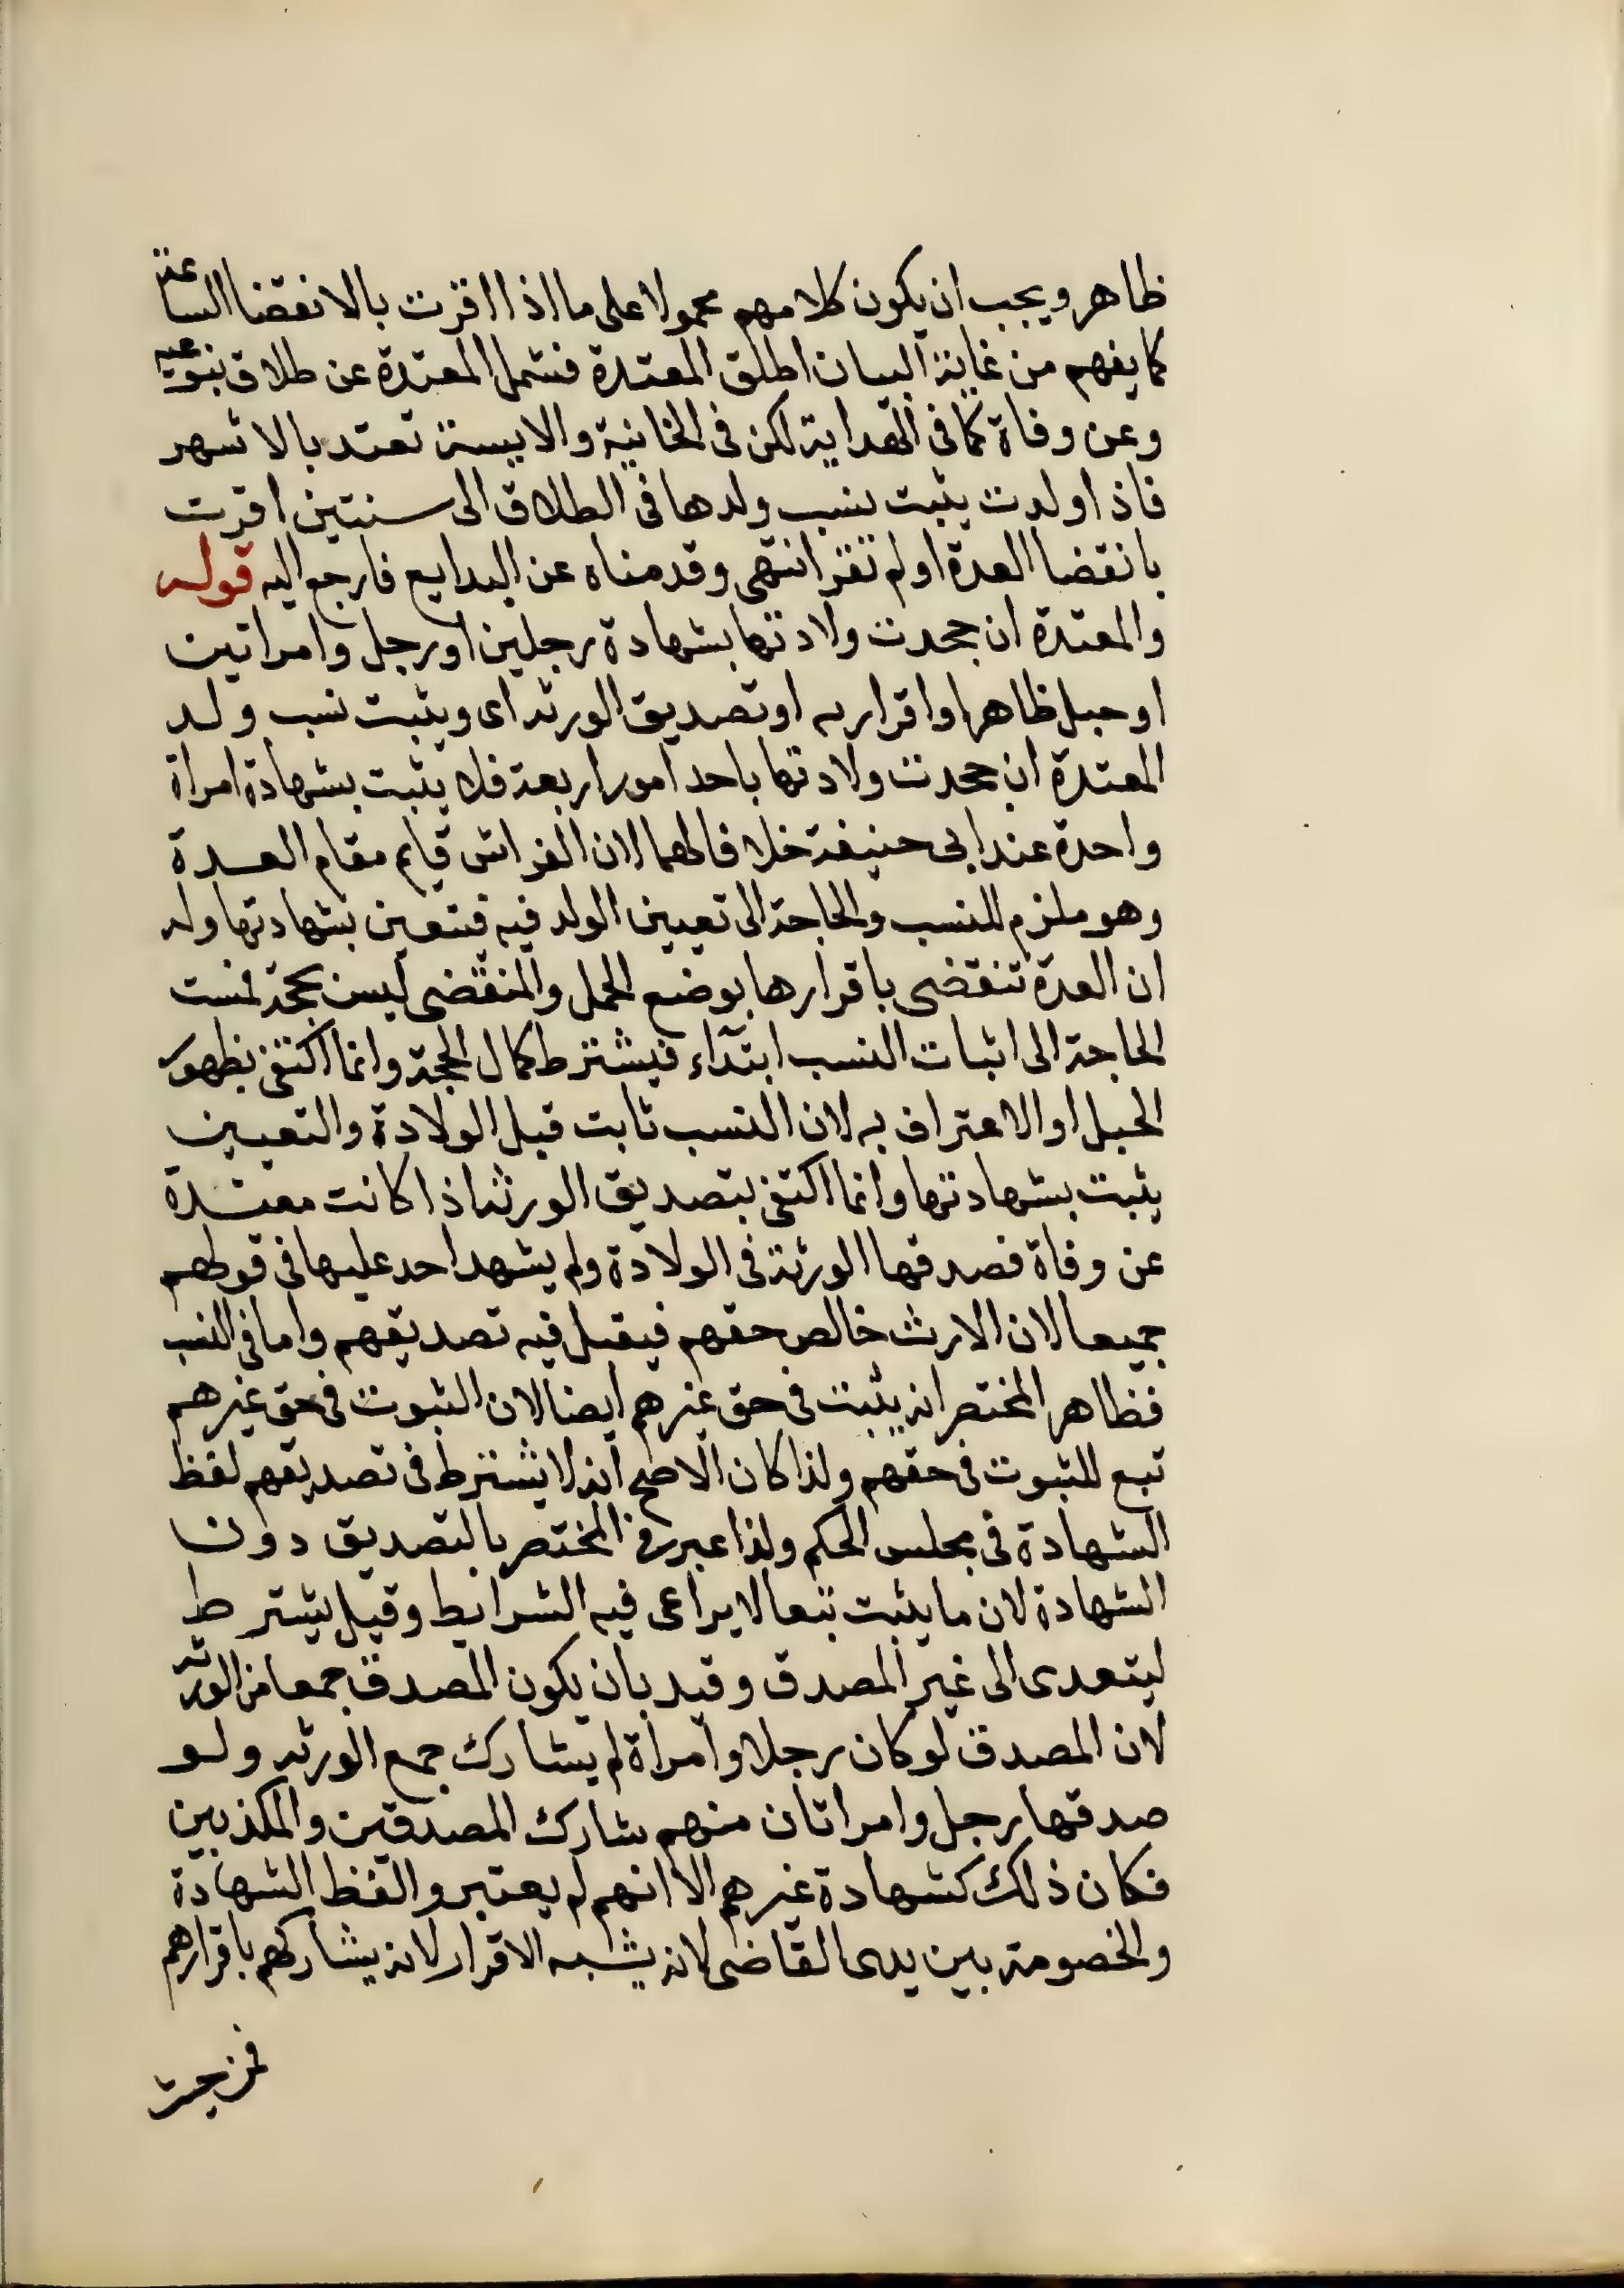 ظاهر ويجب ان يكون كلامهم محمولا على ما اذا اقرت بالانقضا الساعة
كما يفهم من غاية البيان اطلق المعتدة فشمل المعتدة عن طلاق بنوعيه
وعن وفاة كما في الهداية لكن في الخانية والايسة تعتد بالاشهر
فاذا ولدت يثبت نسب ولدها في الطلاق الى سنتين اقرت
بانقضا العدة او لم تقر انتهى وقدمناه عن البدايع فارجع اليه قوله
والمعتدة ان جحدت ولادتها بشهادة رجلين او رجل وامراتين
او حبل ظاهر او اقرار به او تصديق الورثة اى ويثبت نسب ولد
المعتدة ان جحدت ولادتها باحد امور اربعة فلا يثبت بشهادة امراة
واحدة عند ابى حنيفة خلافا لهما لان الفراش قايم مقام العدة
وهو ملزم للنسب والحاجة الى تعيين الولد فيه فيتعين بشهادتها وله
ان العدة تنقضى باقرارها بوضع الحمل والمنقضى ليس بحجة فمست
الحاجة الى اثبات النسب ابتداء فيشترط كمال الحجة وانما اكتفى بظهور
الحبل او الاعتراف به لان النسب ثابت قبل الولادة والتعيين
يثبت بشهادتها وانما اكتفى بتصديق الورثة اذا كانت معتدة
عن وفاة فصدقها الورثة فى الولادة ولم يشهد احد عليها فى قولهم
جميعا لان الارث خالص حقهم فيقبل فيه تصديقهم واما فى النسب
فظاهر المختصر انه يثبت فى حق غيرهم ايضا لان الثبوت فى حق غيرهم
تبع للثبوت فى حقهم ولذا كان الاصح انه لا يشترط فى تصديقهم لفظ
الشهادة فى مجلس الحكم ولذا عبر فى المختصر بالتصديق دون
الشهادة لان ما يثبت تبعا لا يراعى فيه الشرايط وقيل يشترط
ليتعدى الى غير المصدق وقيد بان يكون المصدق جمعا من الورثة
لان المصدق لو كان رجلا وامراة لم يشارك جمع الورثة ولو
صدقها رجل وامراتان منهم شارك المصدقين والمكذبين
فكان ذلك كشهادة غيرهم الا انهم لم يعتبروا لفظ الشهادة
والخصومة بين يدى القاضى لانه يشبه الاقرار لانه يشاركهم باقرارهم
فمن حيث